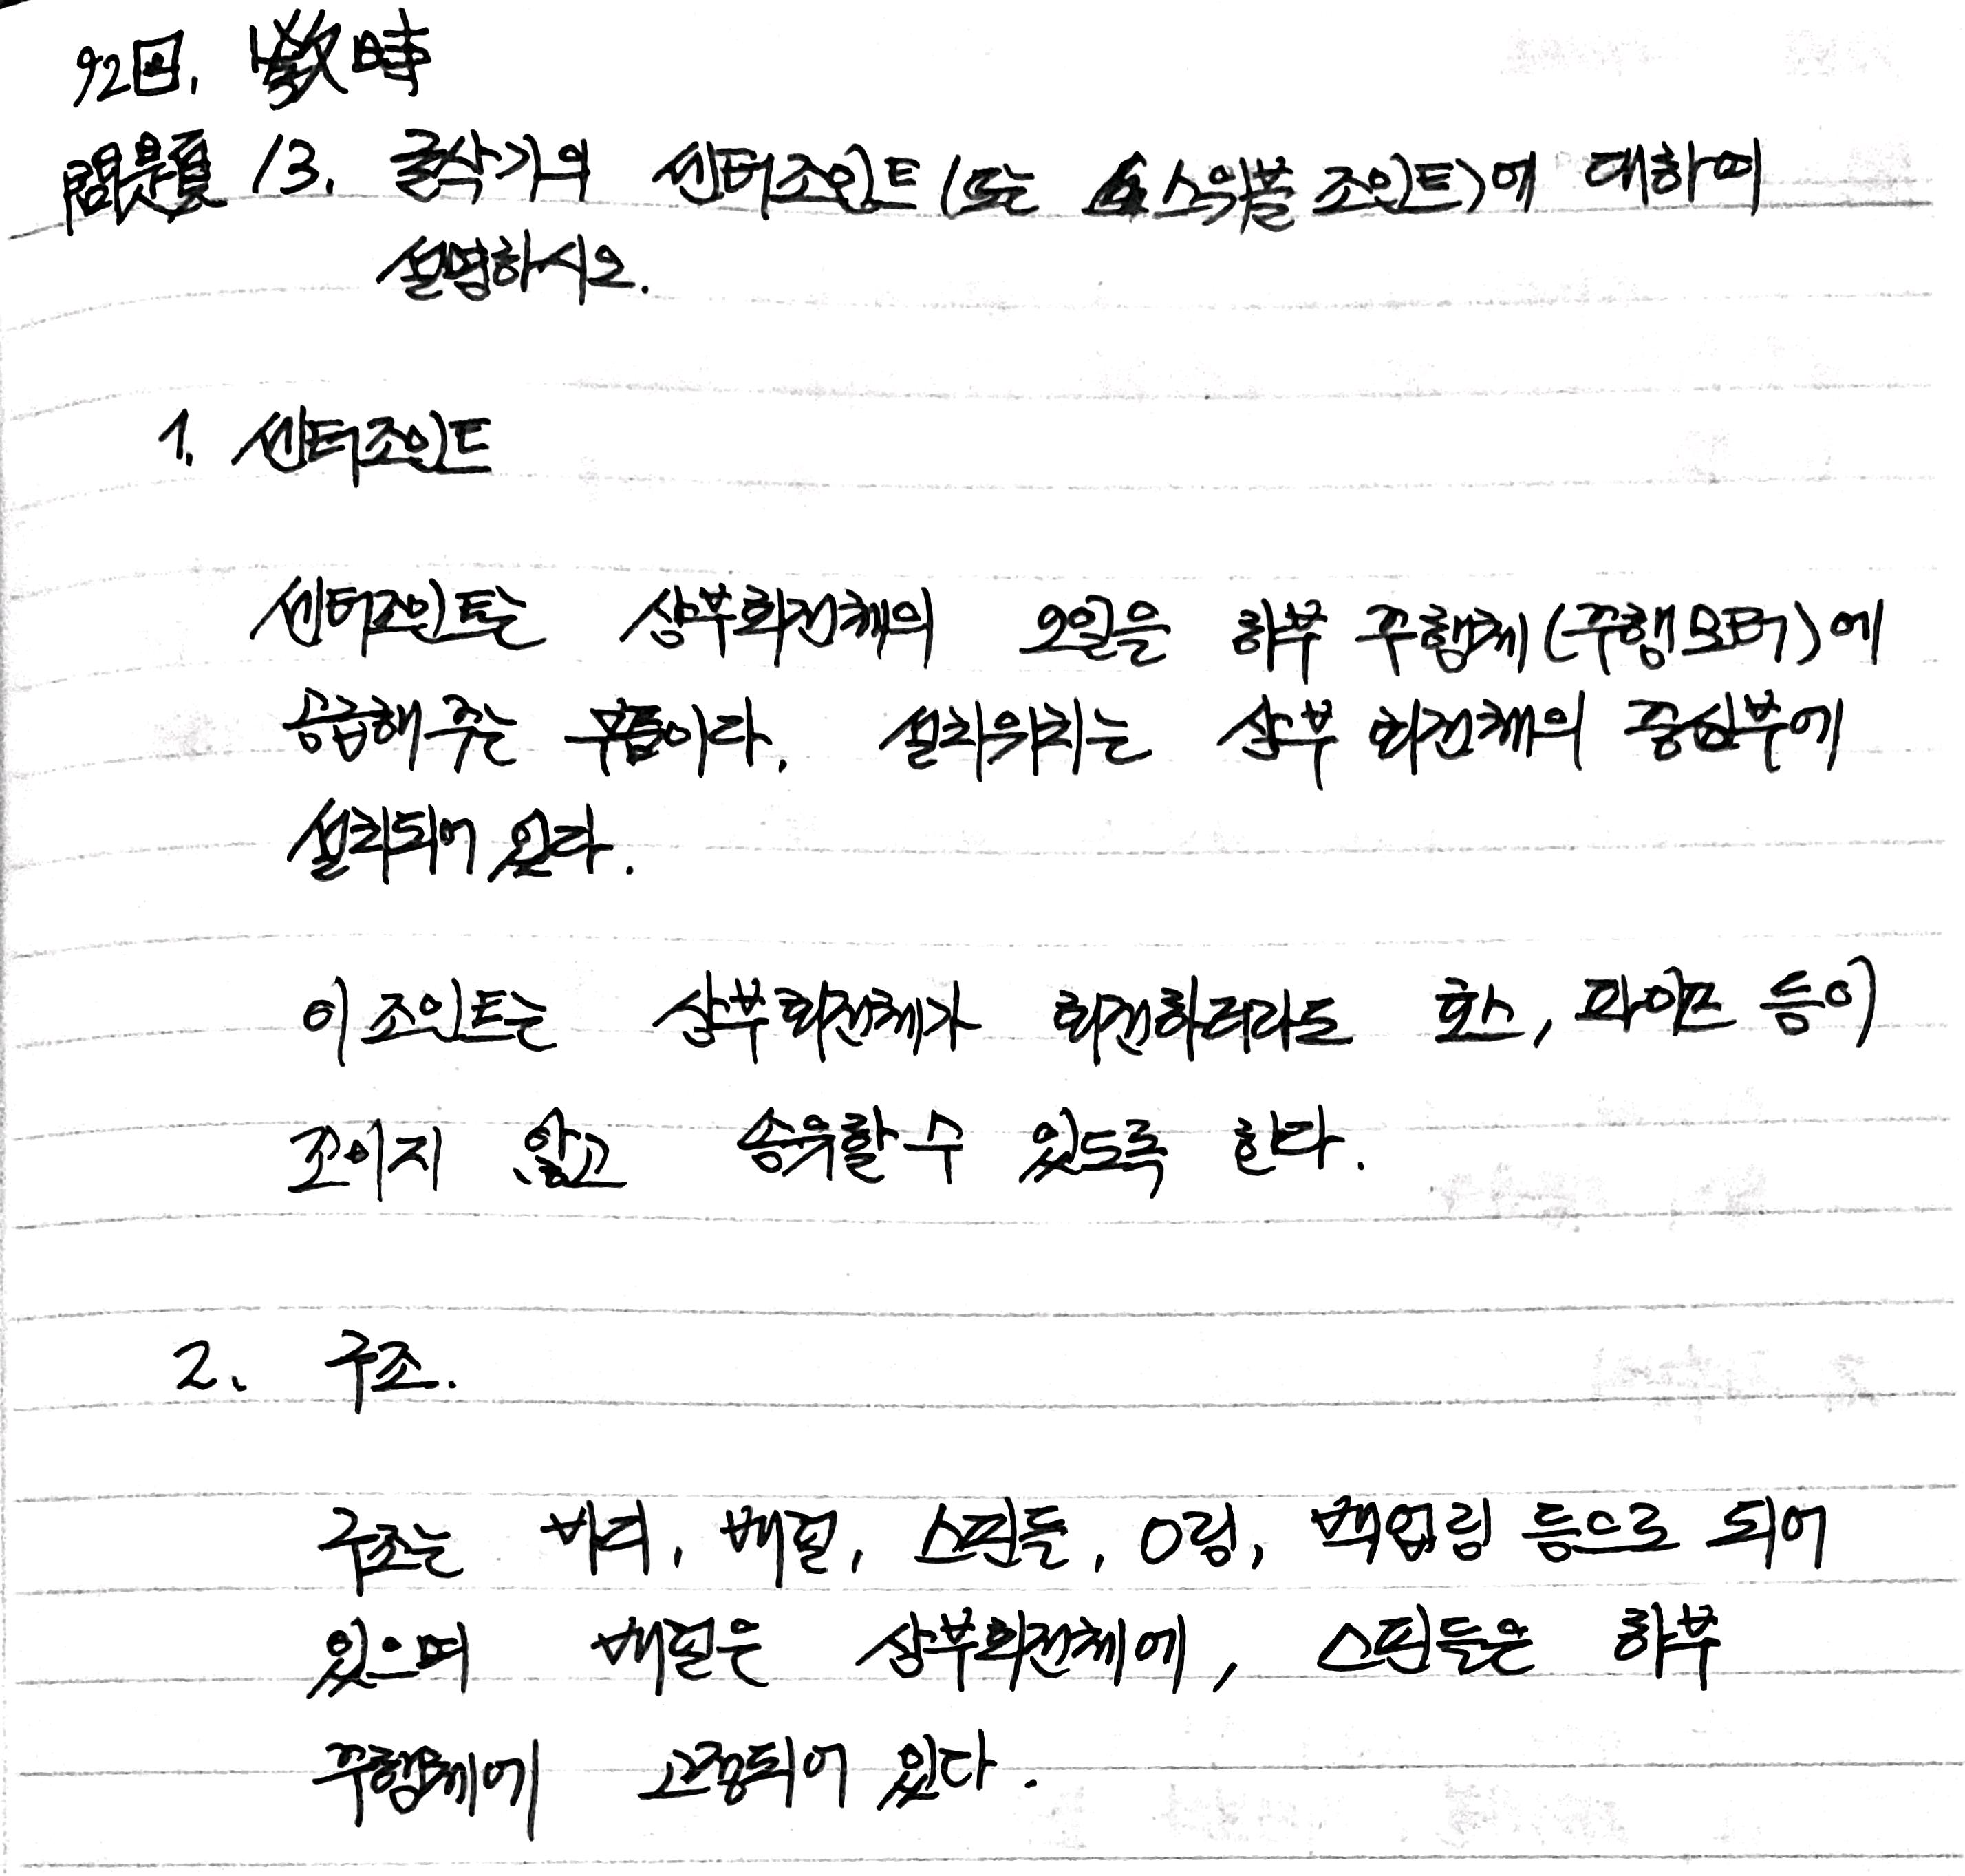 92回. 時
問題 13. 굴삭기의 센터조인트(또는 스위블 조인트)에 대하여
설명하시오.
1. 센터조인트
센터조인트는 상부회전체의 오일을 하부 주행체(주행모터)에
공급해 주는 부품이다. 설치위치는 상부 회전체의 중심부에
설치되어 있다.
이 조인트는 상부회전체가 회전하더라도 호스, 파이프 등이
꼬이지 않고 송유할 수 있도록 한다.
2. 구조.
구조는 바디, 배럴, 스핀들, O링, 백업링 등으로 되어
있으며 배럴은 상부회전체에, 스핀들은 하부
주행체에 고정되어 있다.